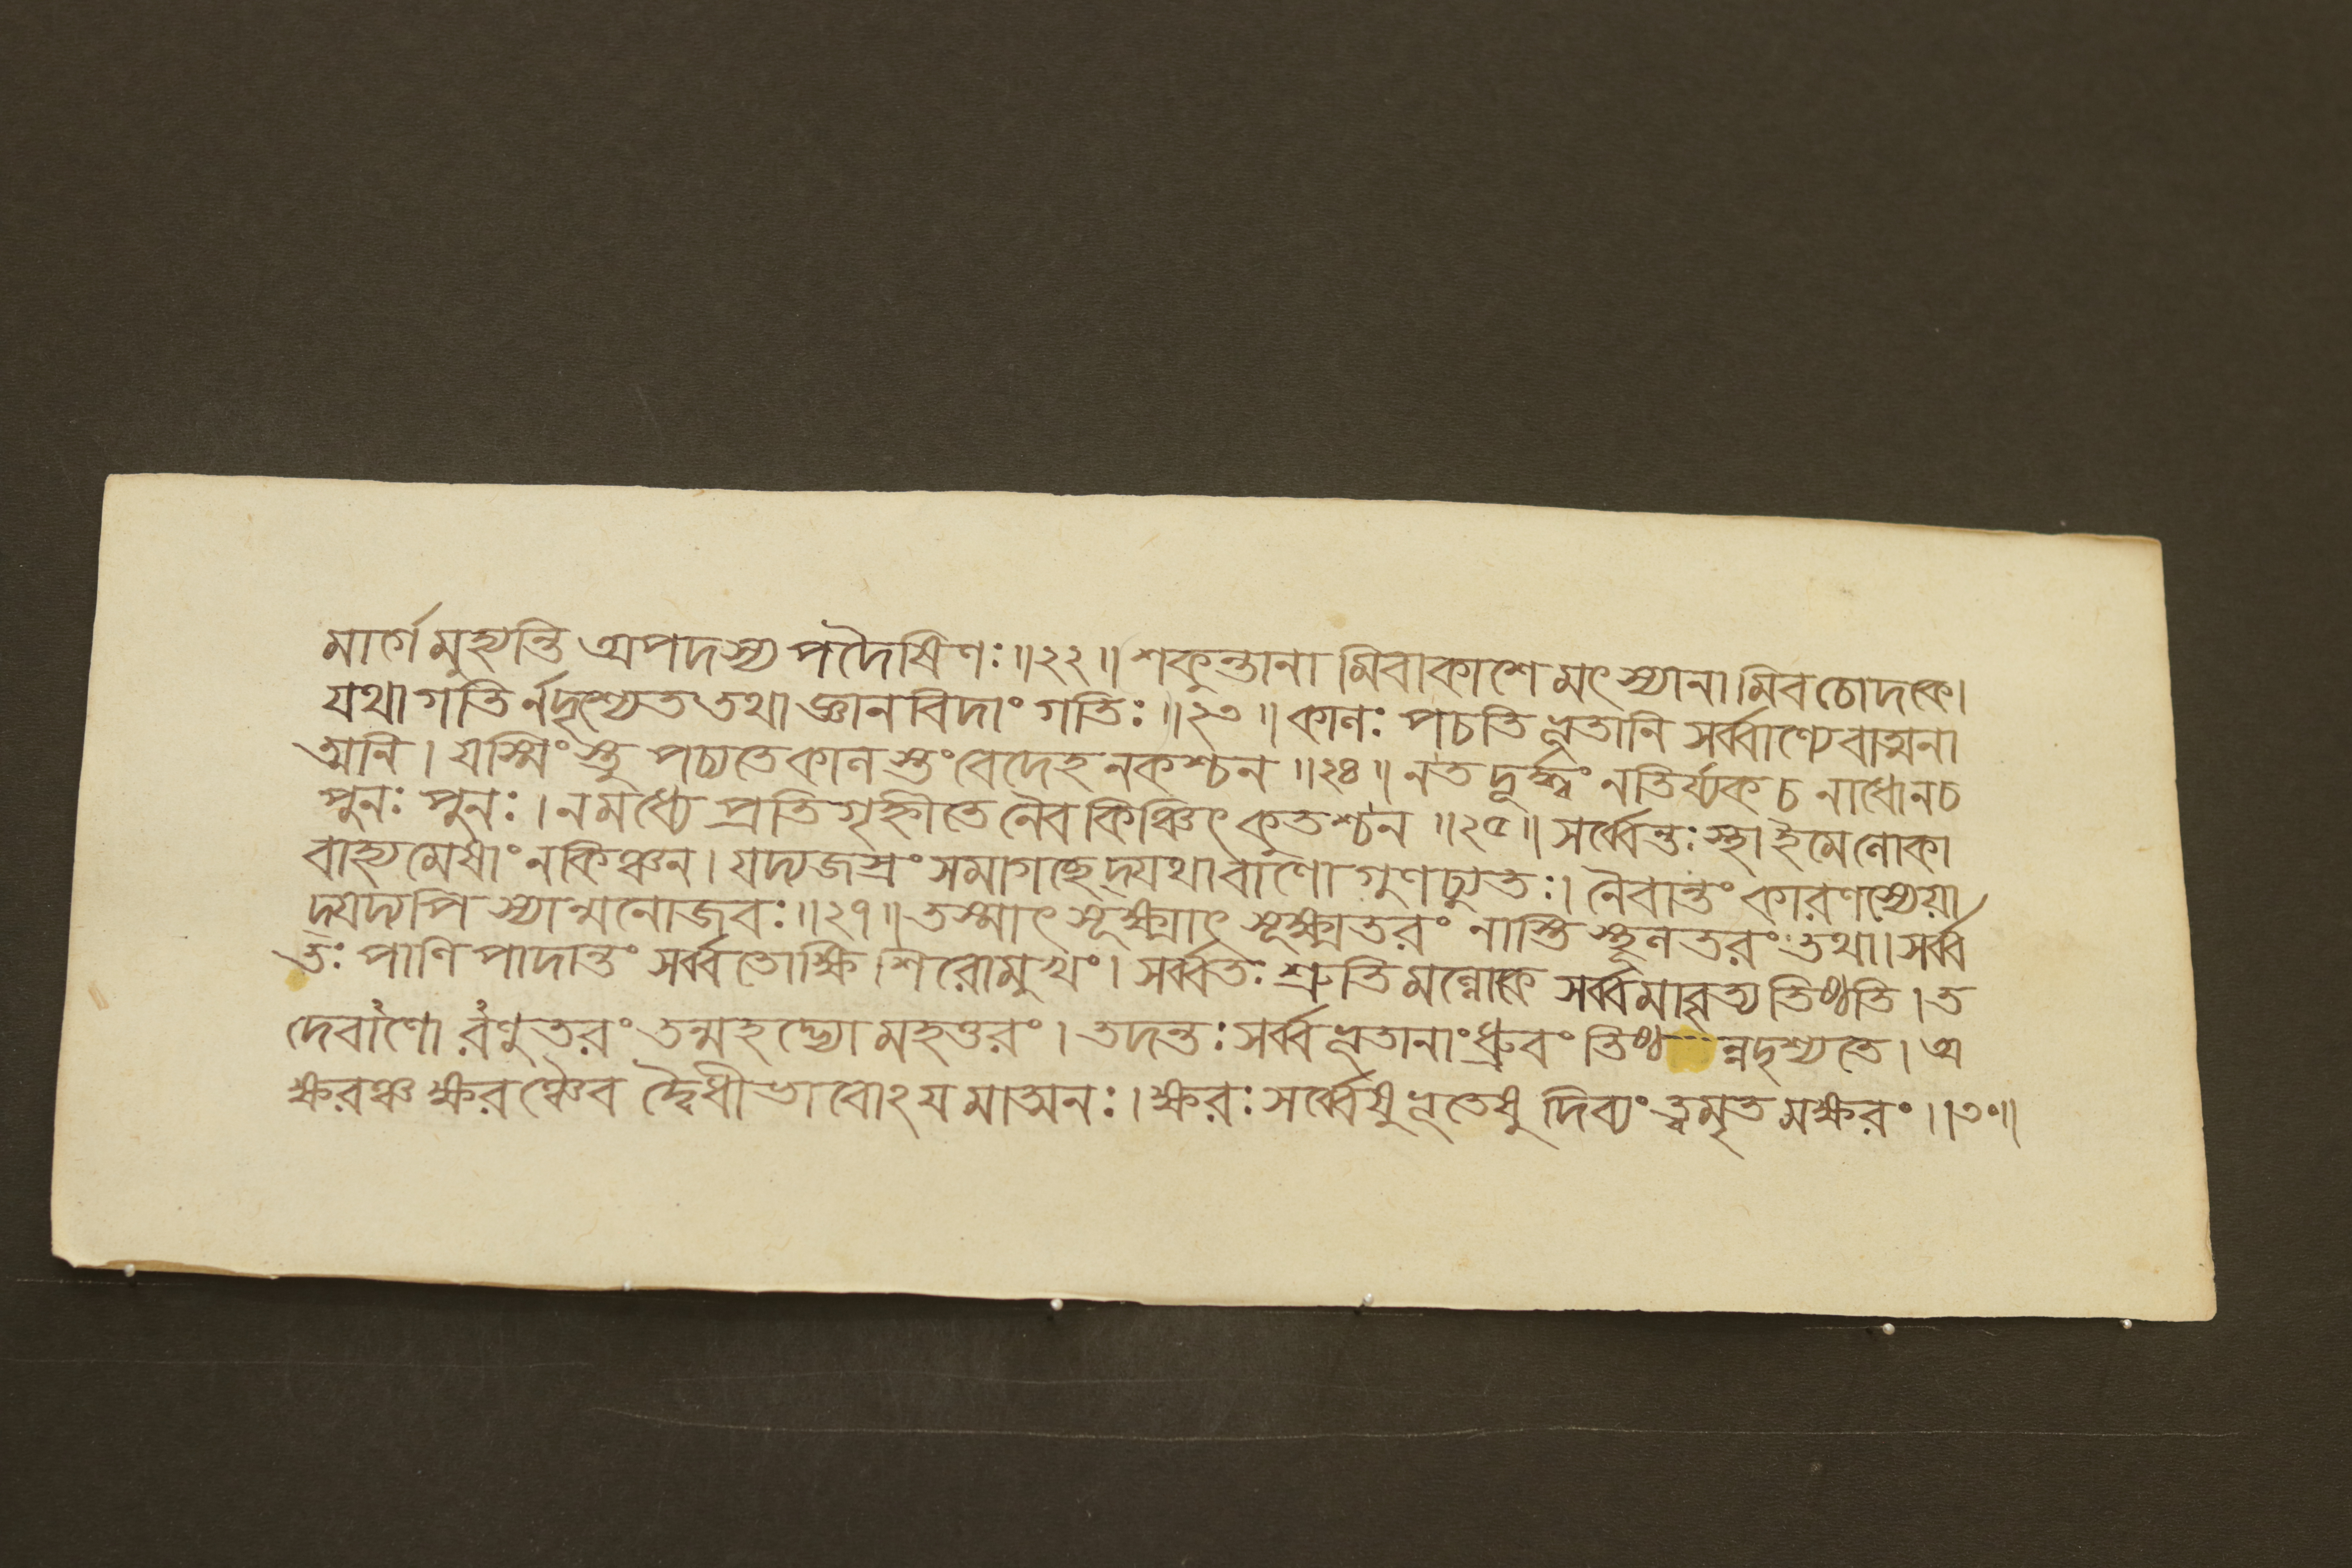 মার্গেমুহ্যন্তি অপদস্য পদৈষিণঃ॥২২॥ শকুন্তানা মিবাকাশে মৎস্যানা মিবচোদকে।
যথা গতির্নদৃশ্যেত তথা জ্ঞানবিদাং গতিঃ॥২৩॥ কালঃ পচতি ভূতানি সর্ব্বাণ্যেবাত্মনা
ত্মনি। যস্মিংস্তু পচ্যতে কাল স্তংবেদেহ নকশ্চন॥২৪॥ নত দূর্দ্ধ্বং নতির্য্যক চ নাধোনচ
পুনঃ পুনঃ। নমধ্যে প্রতিগৃহ্নীতে নৈব কিঞ্চিৎ কুতশ্চন॥২৫॥ সর্ব্বেন্তঃস্থা ইমেলোকা
বাহ্যমেষাং নকিঞ্চন। যদ্যজস্রং সমাগচ্ছেদ্যথা বাণো গুণচ্যুতঃ। নৈবান্তং কারণস্যেয়া
দ্যদ্যপি স্যান্মনোজবঃ॥২৭॥ তস্মাৎ সূক্ষ্মাৎ সূক্ষ্মতরং নাস্তি স্থূলতরং তথা। সর্ব্ব
তঃ পাণি পাদান্তং সর্ব্বতোক্ষি শিরোমুখং। সর্ব্বতঃ শ্রুতিমল্লোকে সর্ব্বমাবৃত্য তিষ্ঠতি। ত
দেবাণো রণুতরং তন্মহদ্ভ্যো মহত্তরং। তদন্তঃ সর্ব্বভূতানাং ধ্রুবং তিষ্ঠ ন্নদৃশ্যতে। অ
ক্ষরঞ্চ ক্ষরঞ্চৈব দ্বৈধীভাবোঽয মাত্মনঃ। ক্ষরঃ সর্ব্বেষু ভূতেষু দিব্যং ত্বমৃত মক্ষরং।।৩০॥